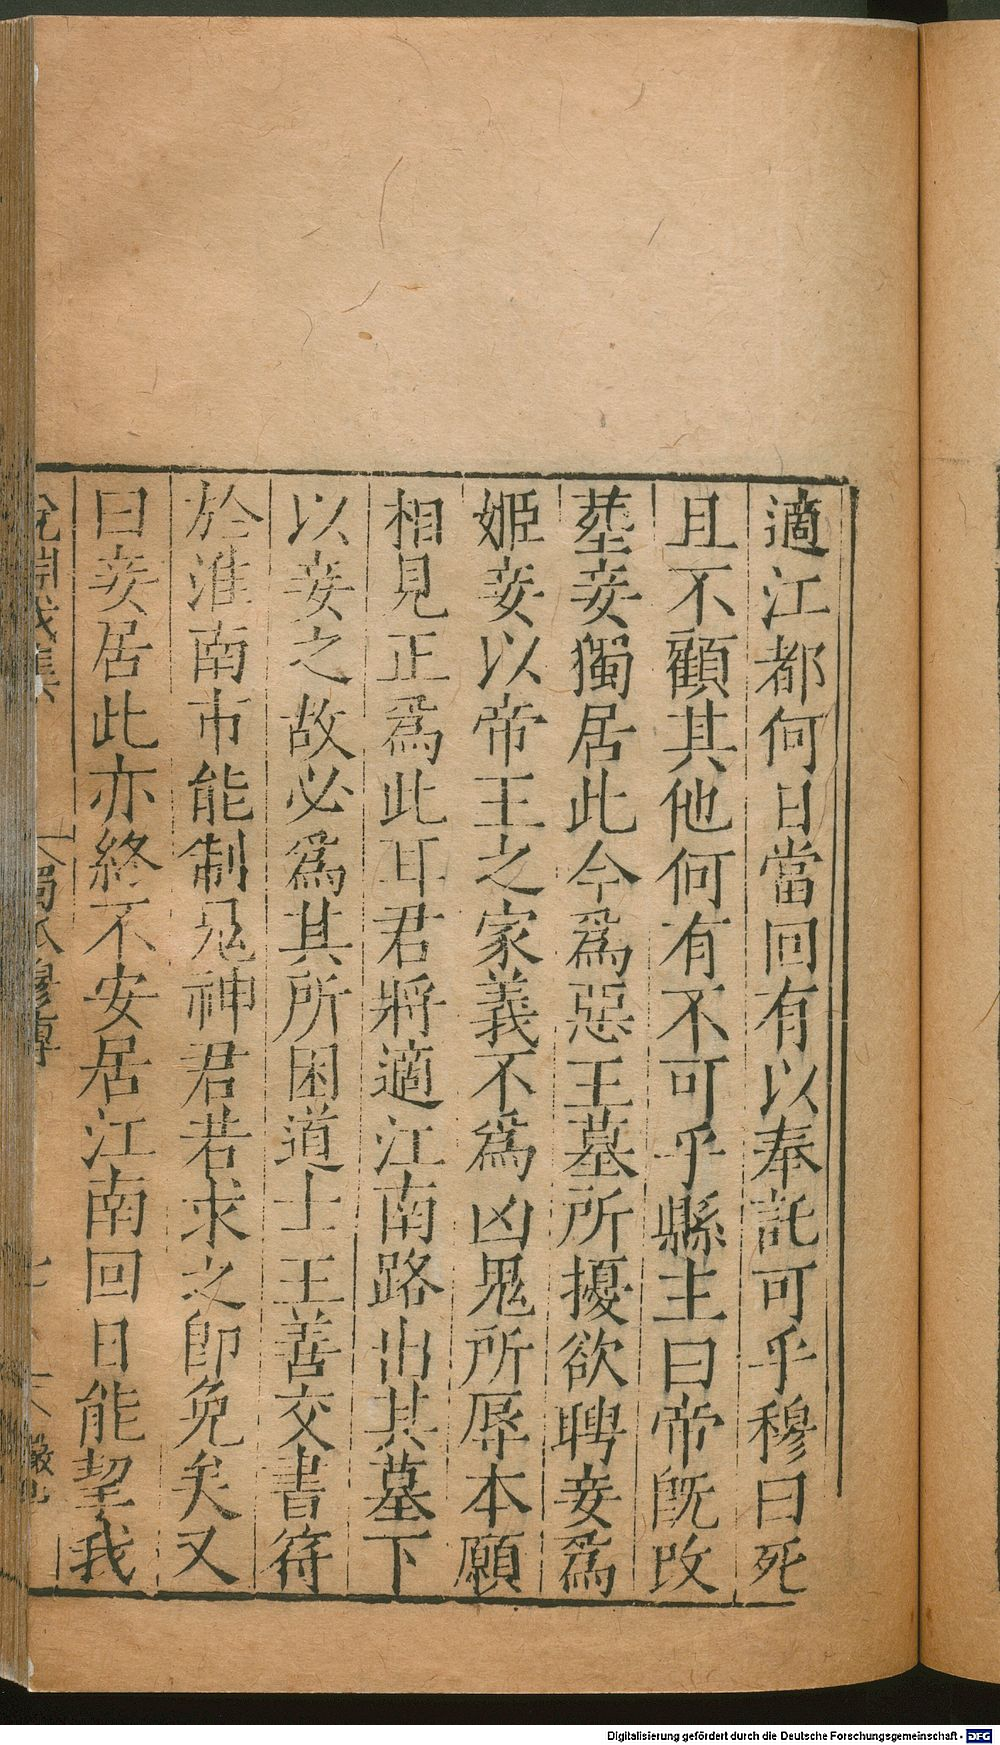 適江都何日當回有以奉託可乎穆曰死
且不顧其他何有不可乎縣主曰帝既改
葬妾獨居此今爲惡王墓所擾欲聘妾爲
姬妾以帝王之家義不爲凶鬼所辱本願
相見正爲此耳君將適江南路出其墓下
以妾之故必爲其所困道士王善交書符
於淮南市能制鬼神君若求之即免矣又
曰妾居此亦終不安居江南回日能挈我
獨孤穆傳
Digitalisierung gefördert durch die Deutsche Forschungsgemeinschaft - DFG